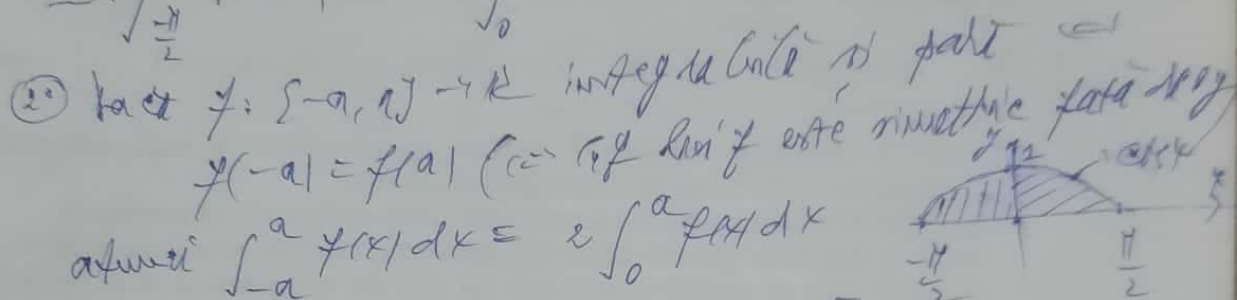 ∫_{-π/2} ∫_0
2° Dacă f: [-a, a] → R integrabilă și pară ⇔
f(-a) = f(a) (⇔ G_f lui f este simetric față de Oy
atunci ∫_{-a}^{a} f(x) dx = 2 ∫_0^a f(x) dx
y
cos x
-π/2 π/2